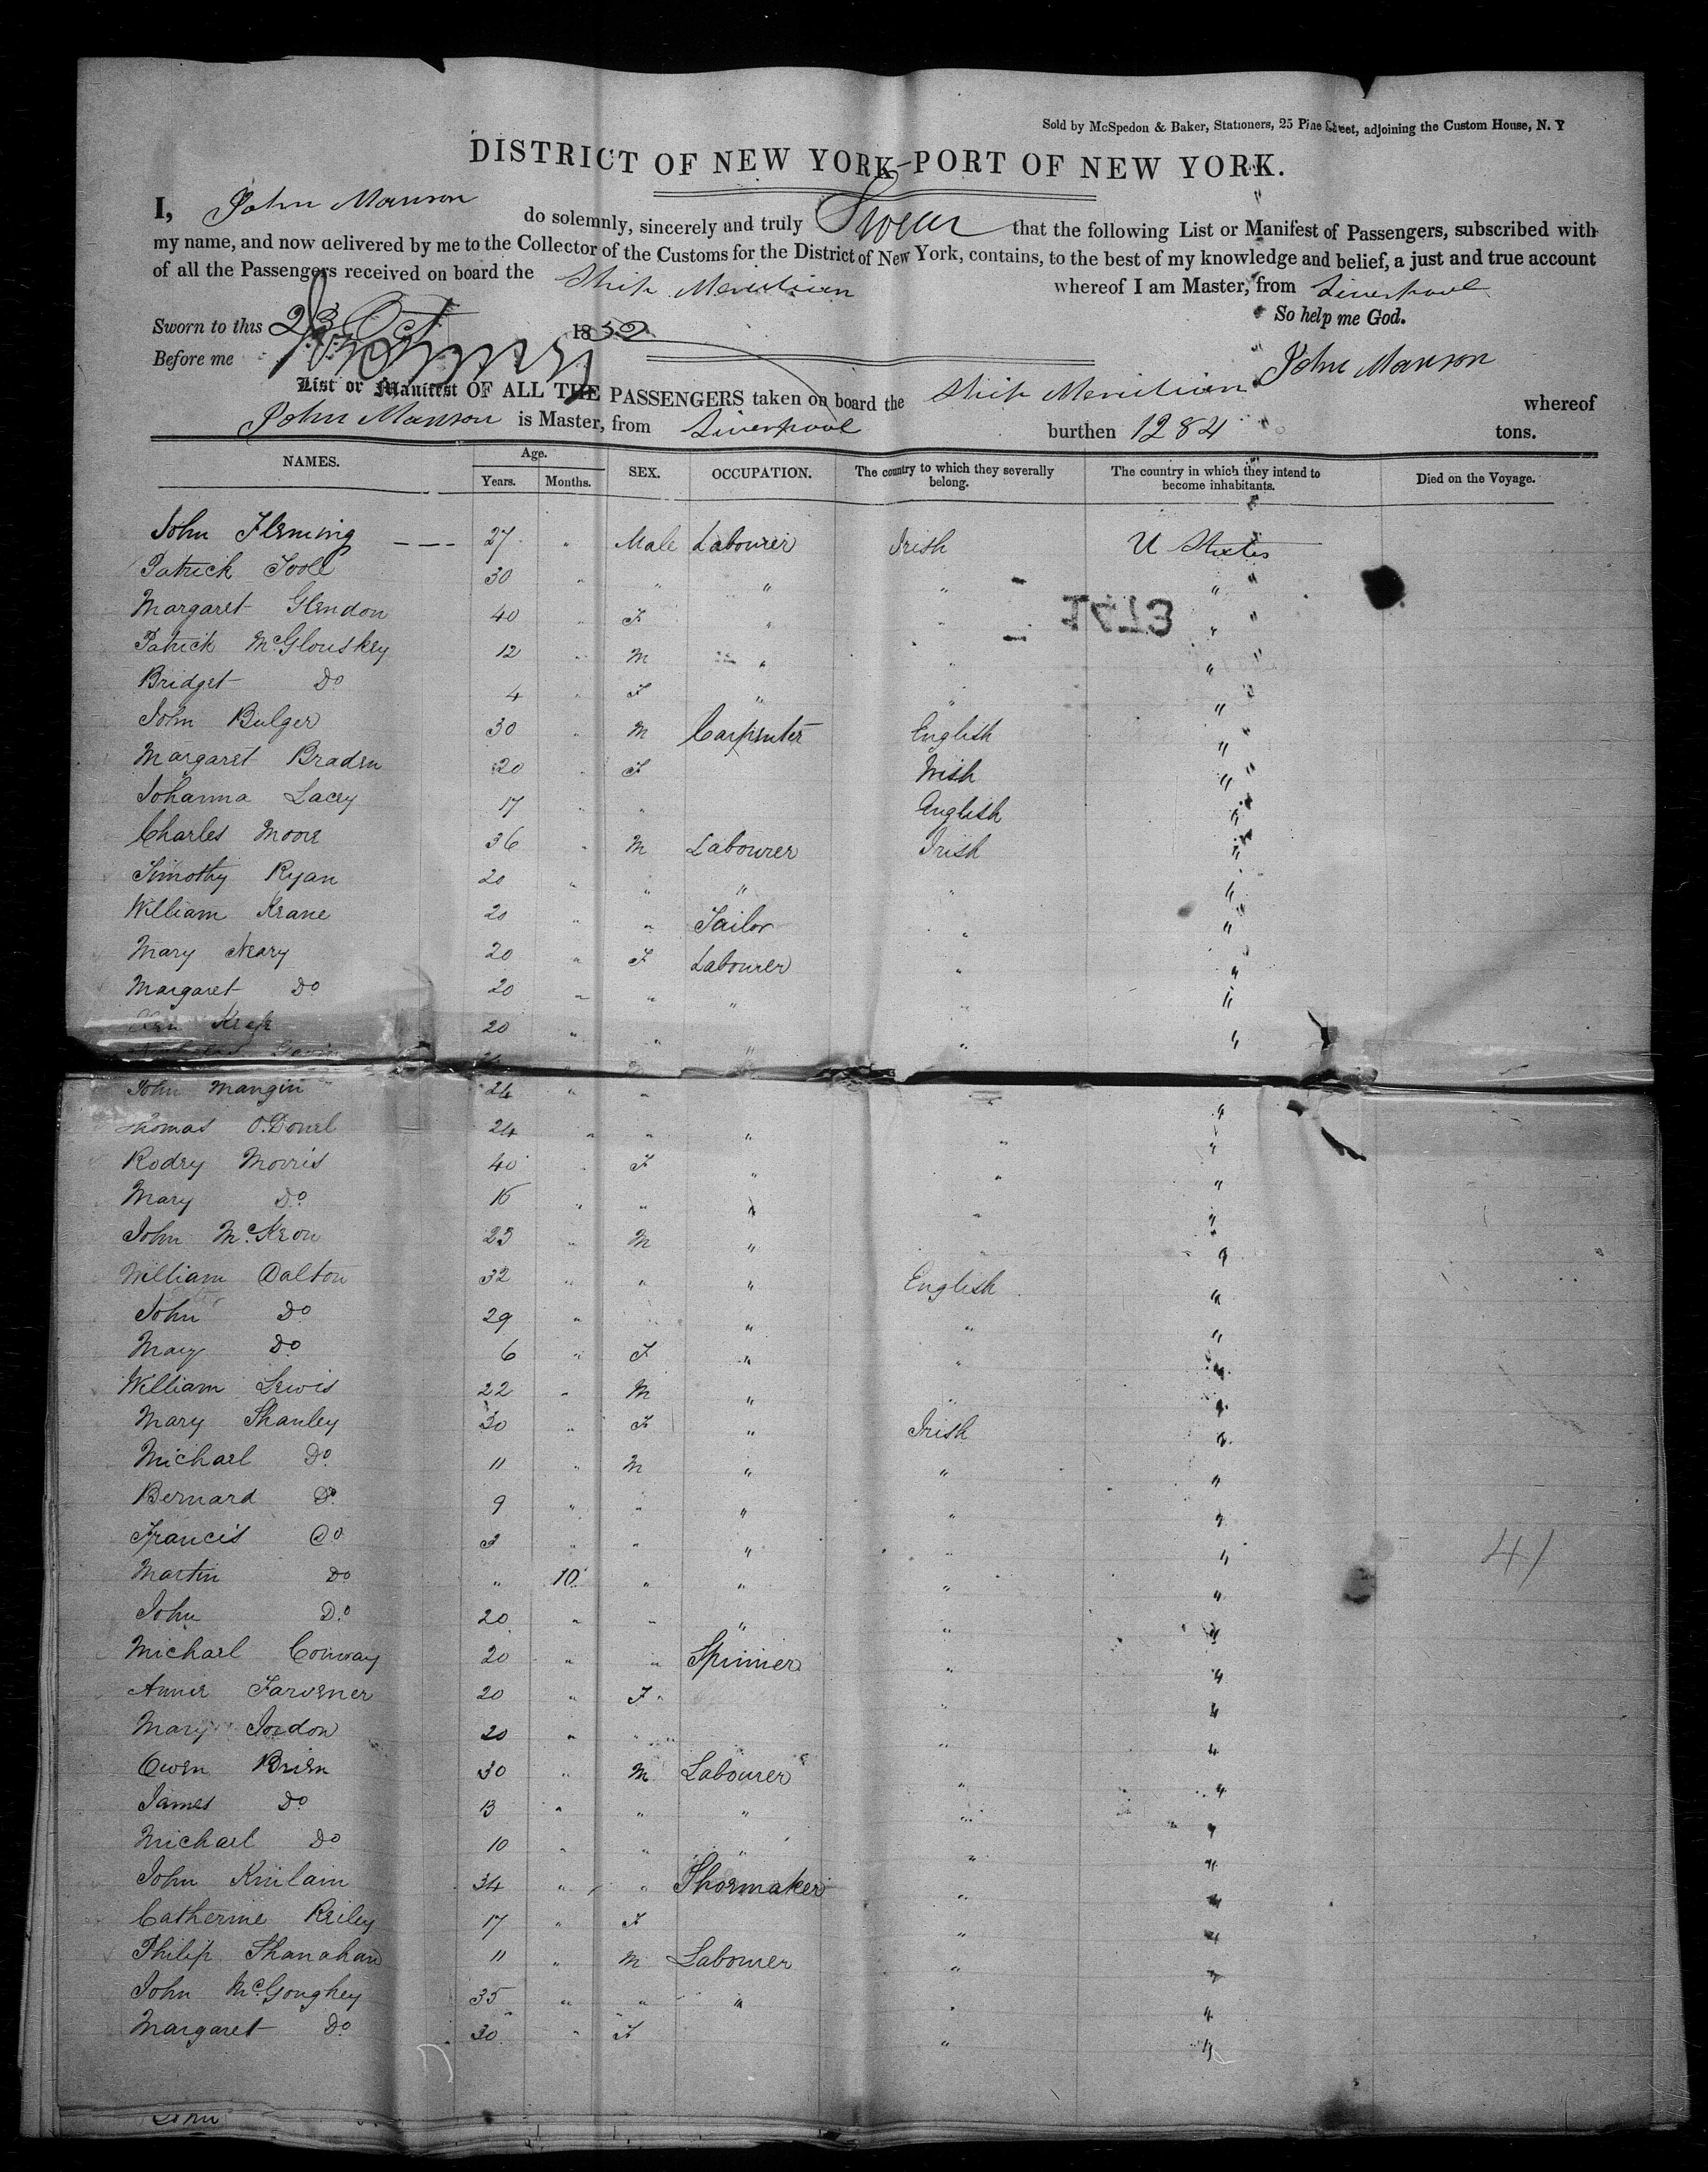 Sold by McSpedon & Baker, Stationers, 25 Pine Street, adjoining the Custom House, N. Y
DISTRICT OF NEW YORK-PORT OF NEW YORK.
I, John Manson do solemnly, sincerely and truly Swear that the following List or Manifest of Passengers, subscribed with
my name, and now delivered by me to the Collector of the Customs for the District of New York, contains, to the best of my knowledge and belief, a just and true account
of all the Passengers received on board the Ship Meridian whereof I am Master, from Liverpool
So help me God.
Sworn to this 23 Oct 1852
Before me
John Manson
List or Manifest OF ALL THE PASSENGERS taken on board the Ship Meridian whereof
John Manson is Master, from Liverpool burthen 1284 tons.
NAMES. Age. Years. Months. SEX. OCCUPATION. The country to which they severally belong. The country in which they intend to become inhabitants. Died on the Voyage.
John Fleming --- 27 " Male Labourer Irish U States
Patrick Toole 30 " " " " "
1473
Margaret Glendon 40 " F " " "
Patrick McGlouskey 12 " M " " "
Bridget Do 4 " F " " "
John Bulger 30 " M Carpenter English "
Margaret Braden 20 " F Irish "
Johanna Lacey 17 " " English "
Charles Moore 36 " M Labourer Irish "
Timothy Ryan 20 " " " " "
William Krane 20 " " Tailor " "
Mary Neary 20 " F Labourer " "
Margaret Do 20 " " " " "
20 " " " " "
John Mangin 24 " " "
Thomas O.Donel 24 " " " " "
Rodey Morris 40 " F " " "
Mary Do 16 " " " " "
John McKeon 23 " M " " "
William Dalton 32 " " " English "
John Do 29 " " " "
Mary Do 6 " F " " "
William Lewis 22 " M " " "
Mary Shanley 30 " F " Irish "
Michael Do 11 " M " " "
Bernard Do 9 " " " " "
Francis Do 3 " " " " "
41
Martin Do " 10 " " " "
John Do 20 " " " " "
Michael Conway 20 " " Spinner " "
Anner Farvener 20 " F " "
Mary Jordon 20 " " " "
Owen Brien 30 " M Labourer " "
James Do 13 " " " " "
Michael Do 10 " " " " "
John Kinlain 34 " " Shoemaker " "
Catherine Reiley 17 " F " "
Philip Shanahan 11 " M Labourer " "
John McGoughey 35 " " " " "
Margaret Do 30 " F " "
John